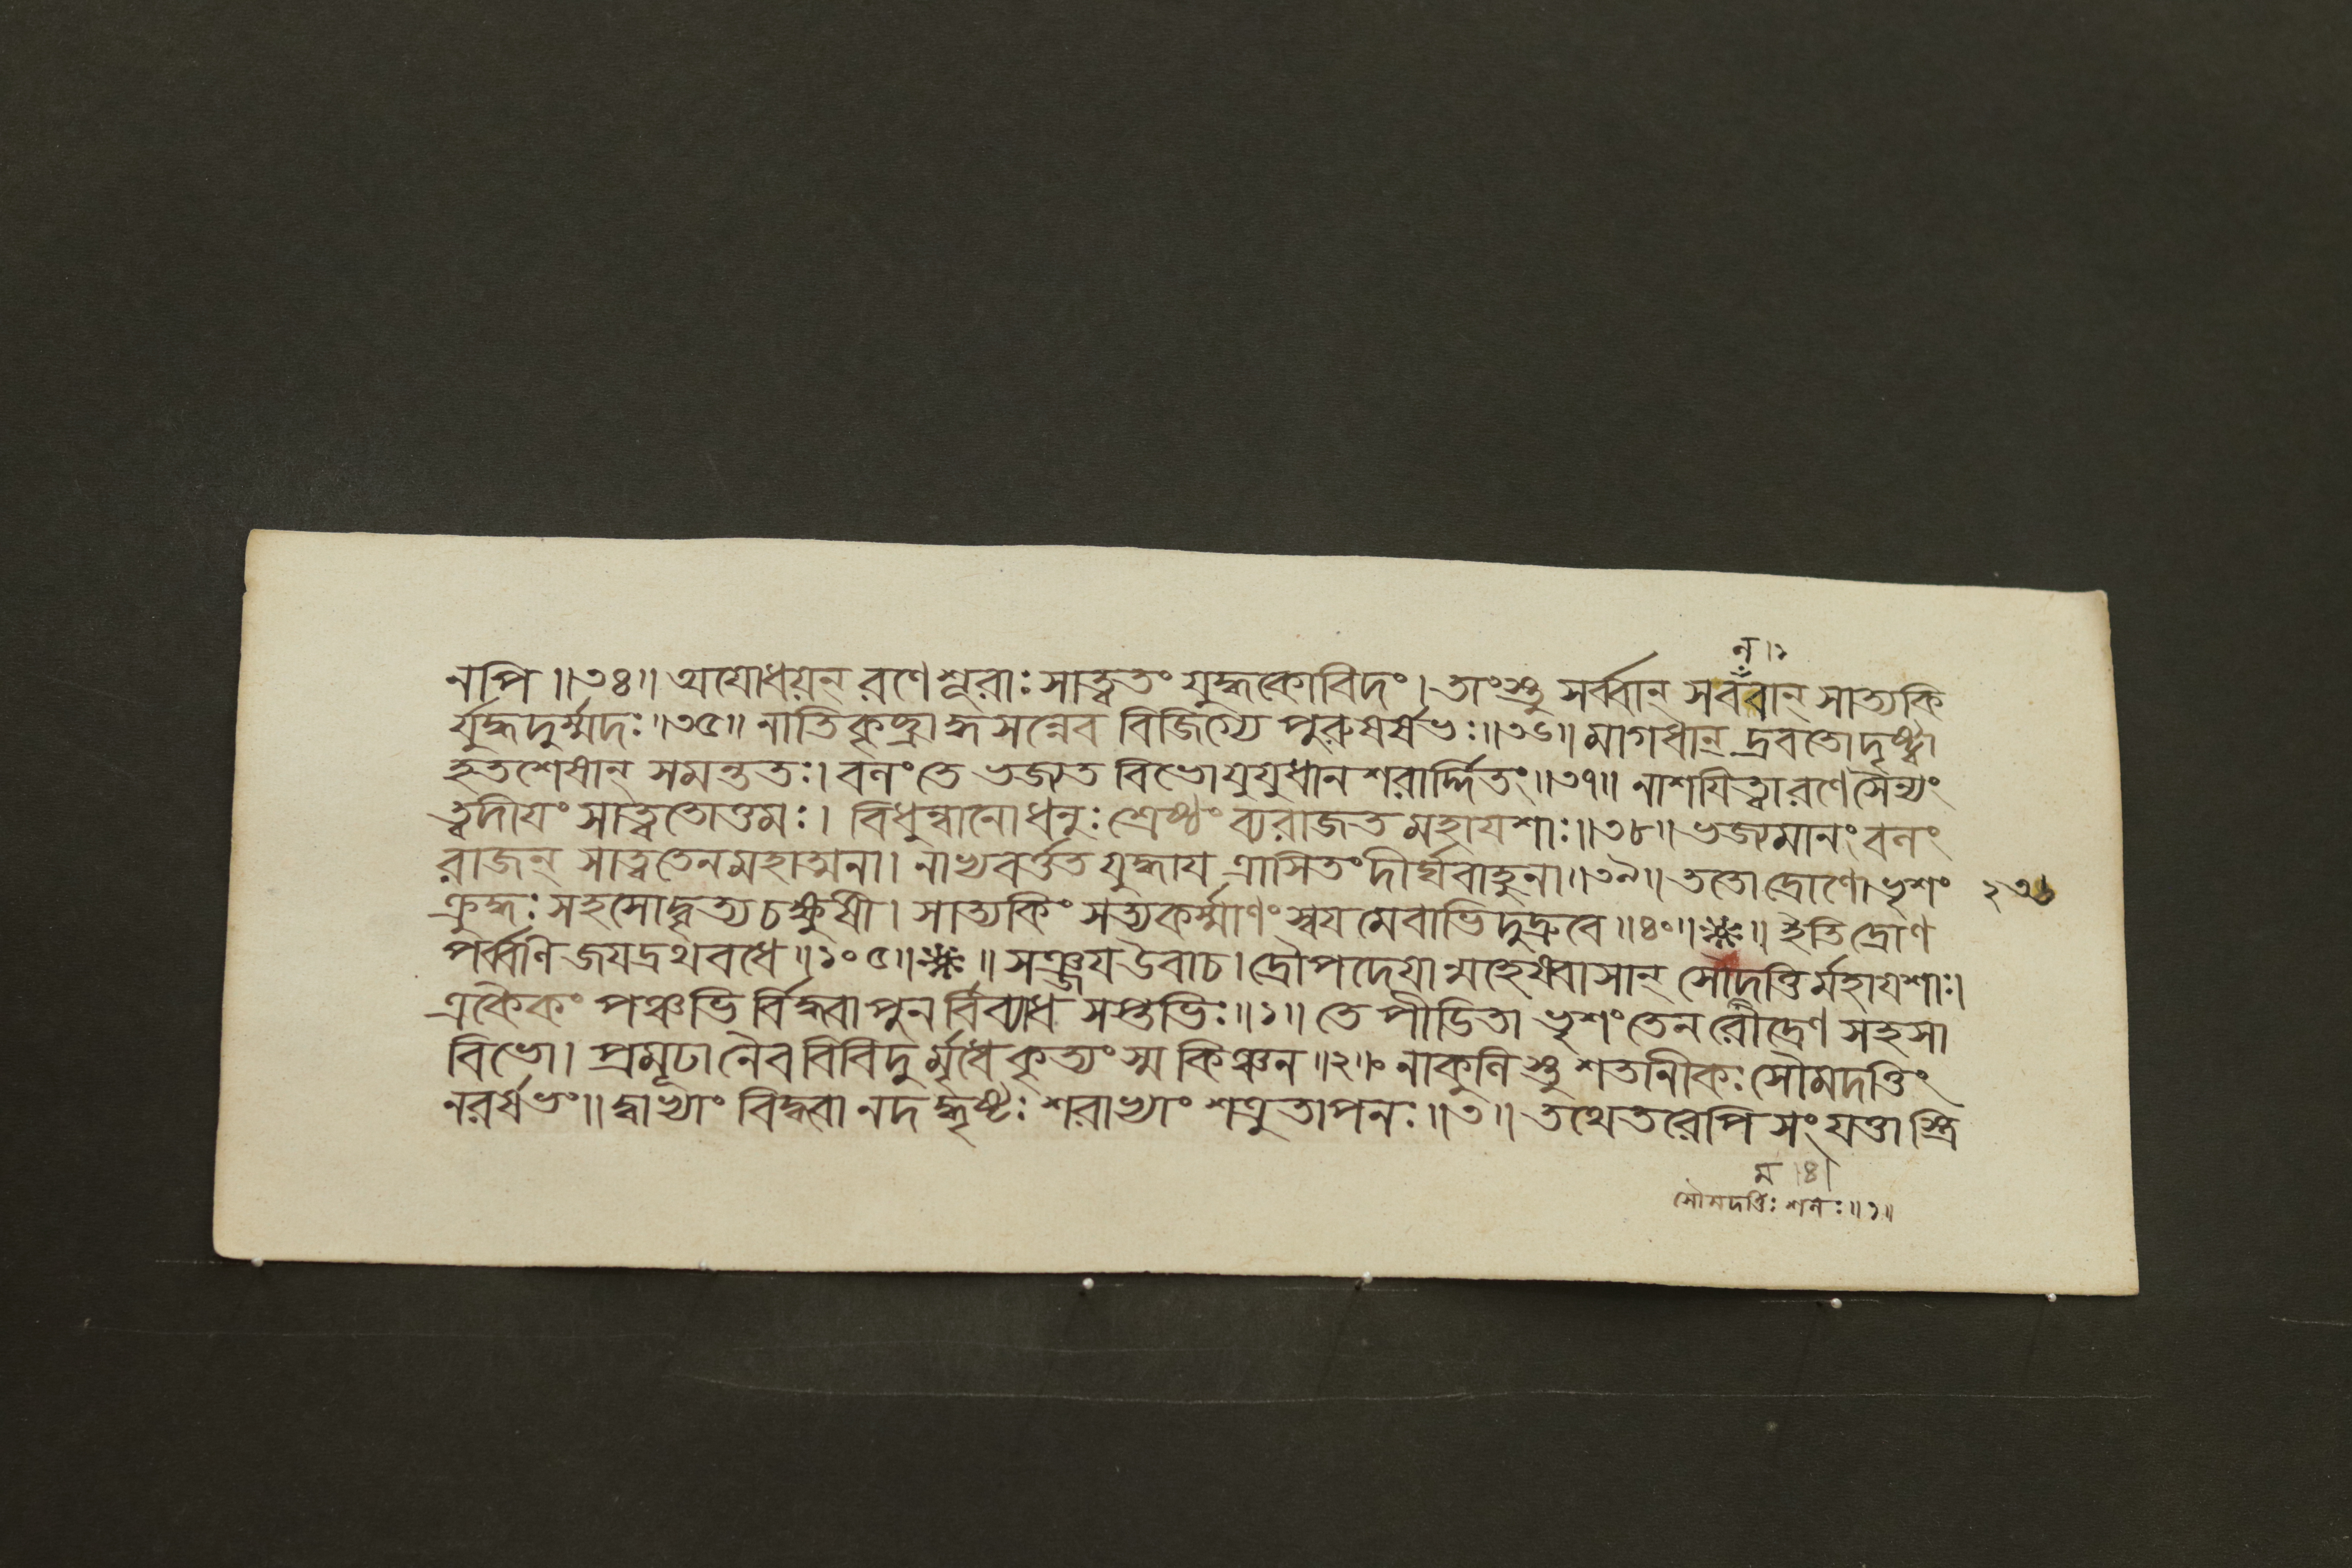 ন।১
নপি॥৩৪॥ অযোধয়ন্ রণে শূরাঃ সাত্ত্বতং যুদ্ধকোবিদং। তাংস্তু সর্ব্বান্ সবঁবান্ সাত্যকি
র্যুদ্ধদুর্ম্মদঃ॥৩৫॥ নাতিকৃচ্ছ্রাদ্ধসন্নেব বিজিগ্যে পুরুষর্ষভঃ॥৩৬॥ মাগধান্ দ্রবতো দৃষ্ট্বা
হতশেষান্ সমন্ততঃ। বলং তে ভজ্যত বিভো যুযুধান শরার্দ্দিতং॥৩৭॥ নাশযিত্বা রণে সৈন্যং
ত্বদীযং সাত্বতোত্তমঃ। বিধুন্বানো ধনুঃ শ্রেষ্ঠং ব্যরাজত মহাযশাঃ॥৩৮॥ ভজ্যমানং বলং
রাজন্ সাত্বতেন মহাত্মনা। নাভ্যবর্ত্তত যুদ্ধায ত্রাসিতং দীর্ঘবাহুনা॥৩৯॥ ততো দ্রোণো ভৃশং
ক্রুদ্ধঃ সহসোদ্বৃত্য চক্ষুষী। সাত্যকিং সত্যকর্ম্মাণং স্বযমেবাভিদুদ্রুবে॥৪০॥ ॥ ইতি দ্রোণ
পর্ব্বণি জযদ্রথবধে॥১০৫॥ ॥ সঞ্জয উবাচ। দ্রৌপদেয়া মহেষ্বাসান্ সৌদত্তির্মহাযশাঃ।
একৈকং পঞ্চভি র্বিদ্ধ্বা পুন র্বিব্যাধ সপ্তভিঃ॥১॥ তে পীডিতা ভৃশং তেন রৌদ্রেণ সহসা
বিভো। প্রমূঢা নৈব বিবিদু র্মৃধে কৃত্যং স্ম কিঞ্চন॥২॥ নাকুলি স্তু শতানীকঃ সৌমদত্তিং
নরর্ষভং॥ দ্বাভ্যাং বিদ্ধ্বানদদ্ধৃষ্টঃ শরাভ্যাং শত্রুতাপনঃ॥৩॥ তথেতরেপি সংযত্তাস্ত্রি
ম।৪।
সৌমদত্তিঃ শলঃ॥১॥